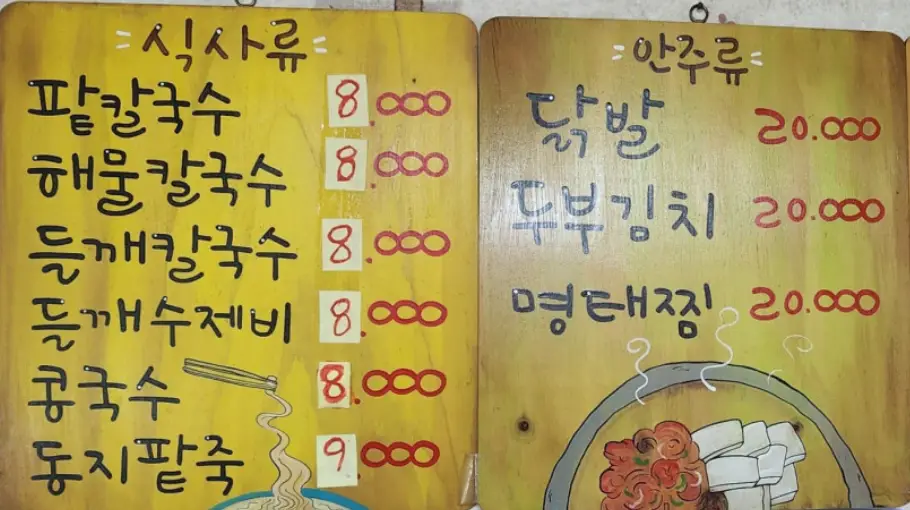 식사류
팥칼국수 8.000
해물칼국수 8.000
들깨칼국수 8.000
들깨수제비 8.000
콩국수 8.000
동지팥죽 9000
안주류
닭발 20.000
두부김치 20.000
명태찜 20.000